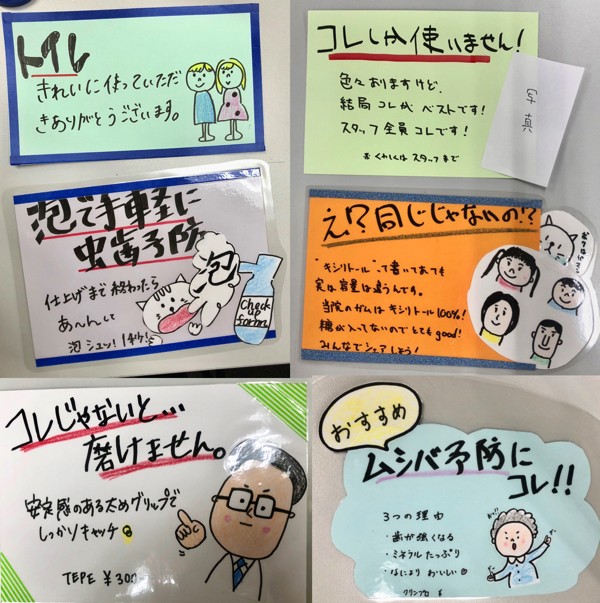 トイレ
きれいに使っていただ
きありがとうございます。
コレしか使いません!
色々ありますけど、
結局コレがベストです!
スタッフ全員コレです!
※くわしくはスタッフまで
写真
泡で手軽に
虫歯予防
仕上げまで終わったら
あ〜んして
泡シュッ!1秒!
泡
Check
up
foam
え!?同じじゃないの!?
"キシリトール"って書いてあっても
実は容量は違うんです。
当院のガムはキシリトール100%!
糖が入ってないのでとてもgood!
みんなでシェアしよう!
コレじゃないと…
磨けません。
安定感のある太めグリップで
しっかりキャッチ
TEPE ¥300
おすすめ
ムシバ予防に
コレ!!
3つの理由
・歯が強くなる
・ミネラルたっぷり
・なによりおいしい
クリンプロ ¥